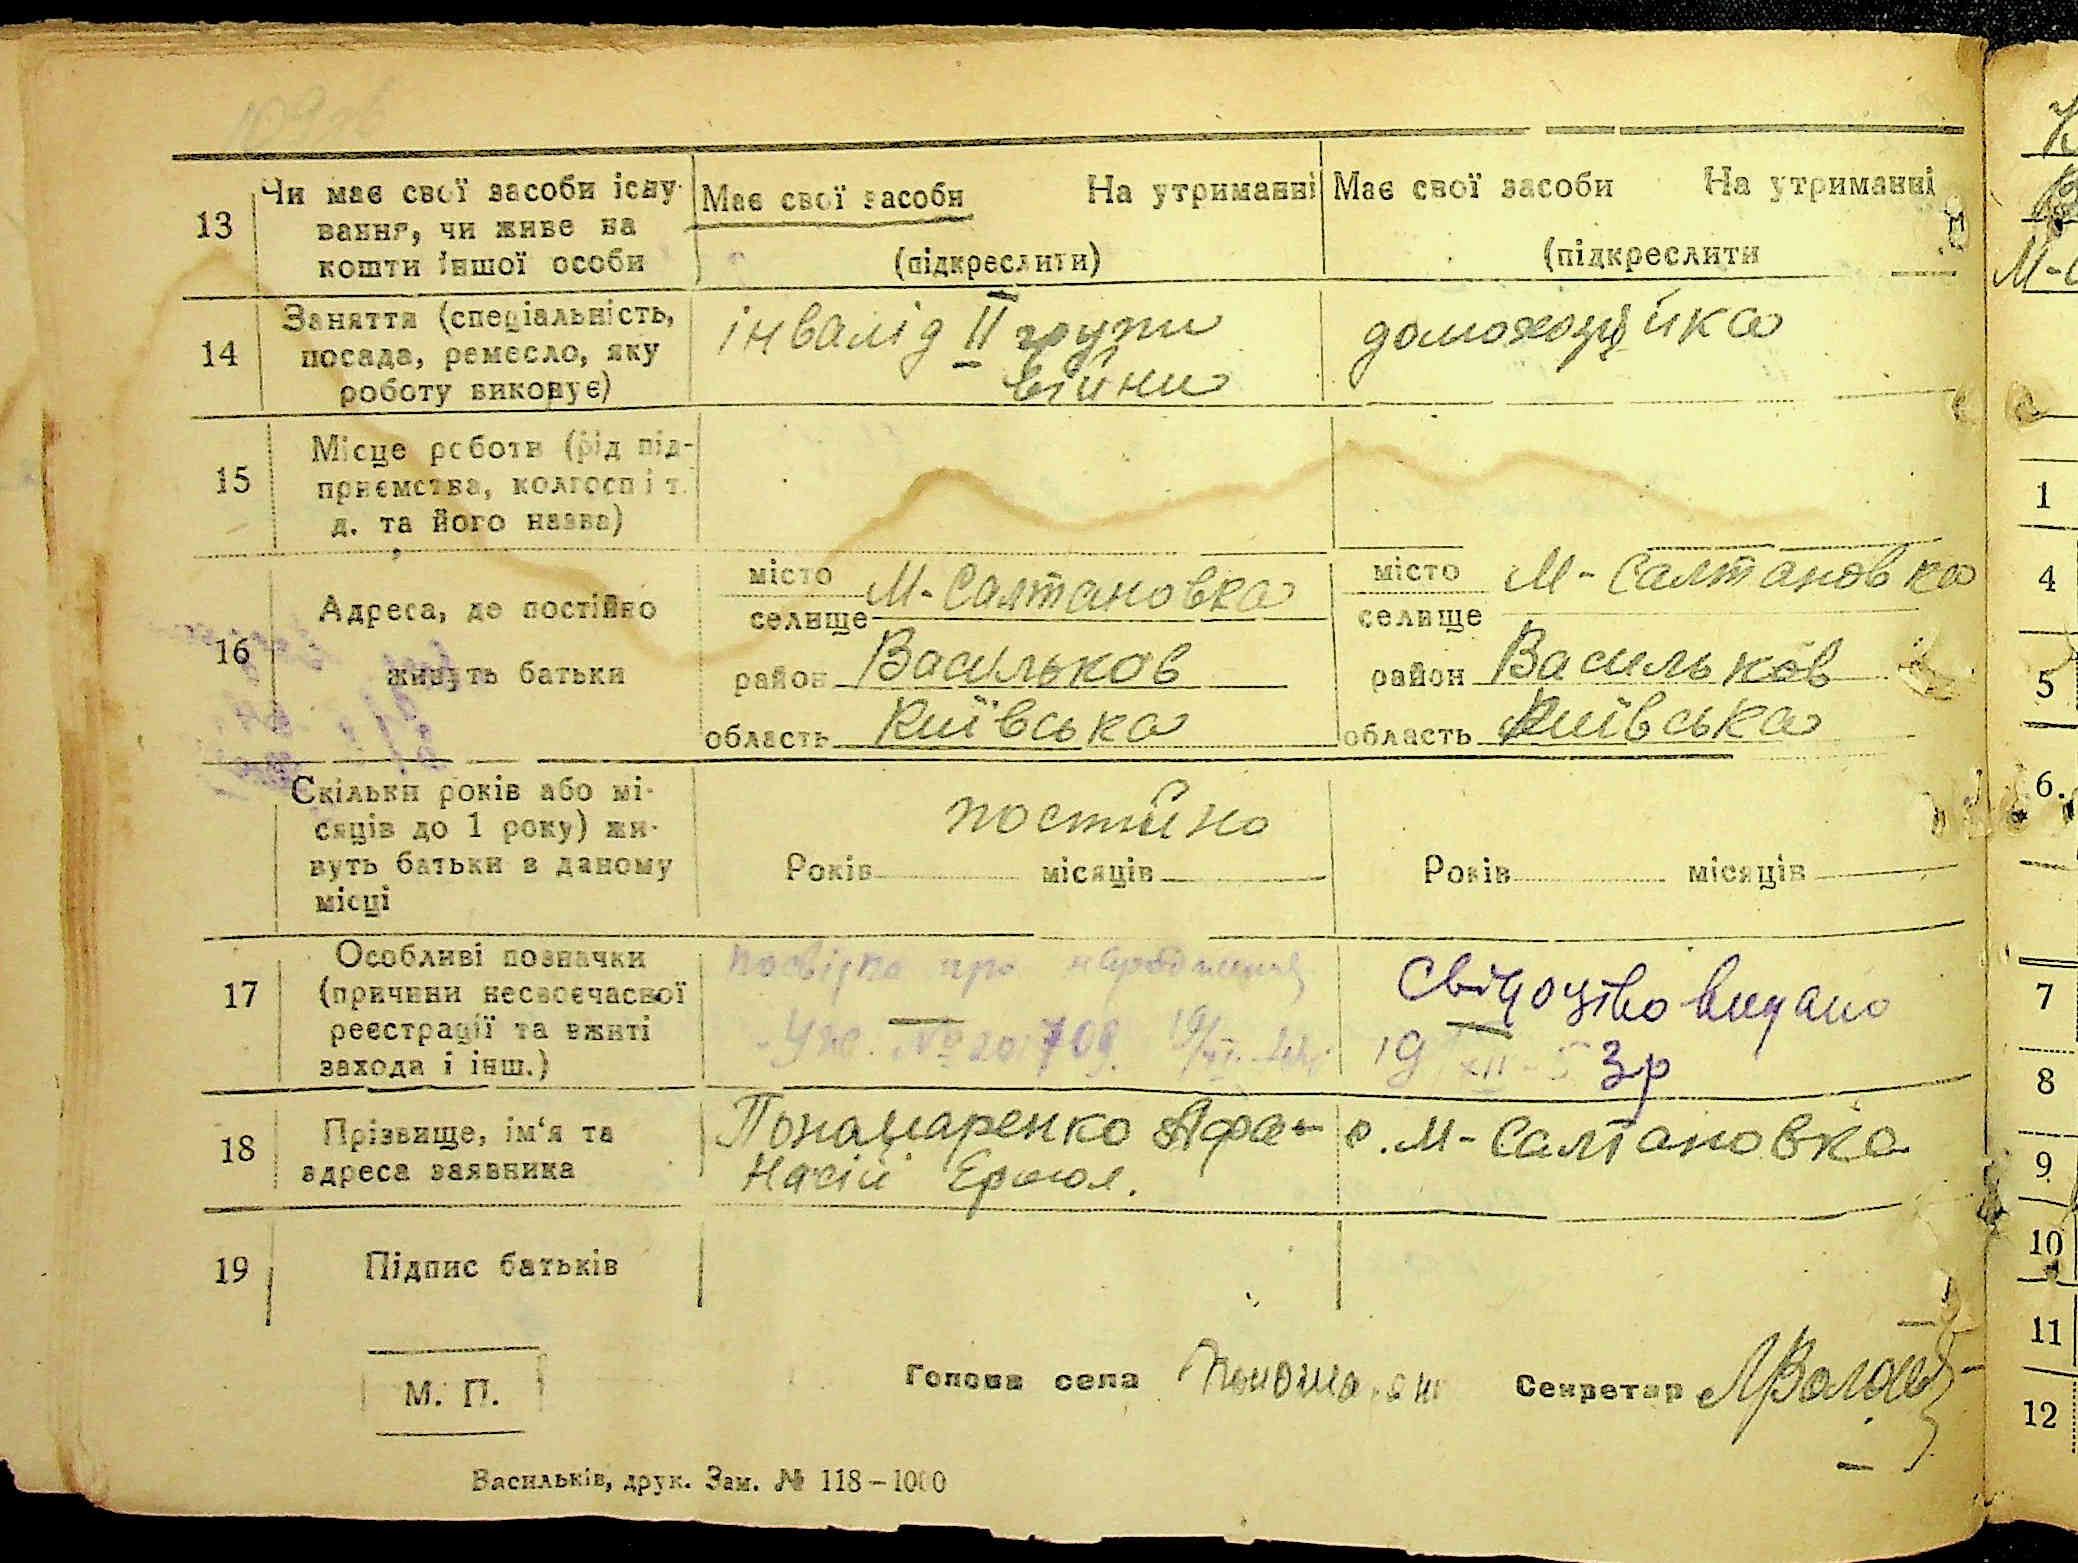 13 Чи має свої засоби існу- Має свої засоби На утриманні Має свої засоби На утриманні
вання, чи живе на
кошти іншої особи (підкреслити) (підкреслити
14 Заняття (спеціальність, інвалід ІІ групи домохозяйка
посада, ремесло, яку війни
роботу виконує)
15 Місце роботи (рід під-
приємства, колгосп і т.
д. та його назва)
16 Адреса, де постійно живуть батьки
місто селище М-Салтановка місто селище М-Салтановка
район Васильков район Васильков
область Київська область Київська
Скільки років або мі-
сяців до 1 року) жи- постійно
вуть батьки в даному Років місяців Років місяців
місці
17 Особливі позначки
(причини несвоєчасної
реєстрації та вжиті
заходи і інш.)
посвідка про народження
№ 20709.
Свідоцтво видано
19/XII-53р
18 Прізвище, ім'я та Пономаренко Афа- с. М-Салтановка
адреса заявника насій
19 Підпис батьків
М. П. Голова села Секретар
Васильків, друк. Зам. № 118-1000
М-
1
4
5
6.
7
8
9
10
11
12